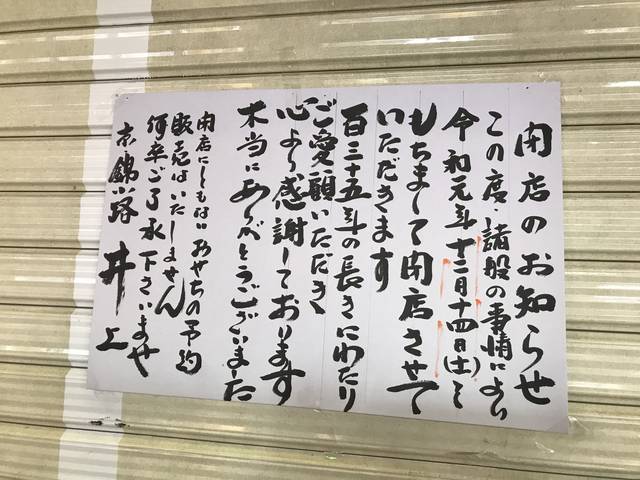 閉店のお知らせ
この度、諸般の事情により
令和元年十二月十四日(土)を
もちまして閉店させて
いただきます
百三十五年の長きにわたり
ご愛顧いただき
心より感謝しております
本当にありがとうございました
閉店にともないおせちの予約
販売はいたしません
何卒ご了承下さいませ
京・錦小路 井上